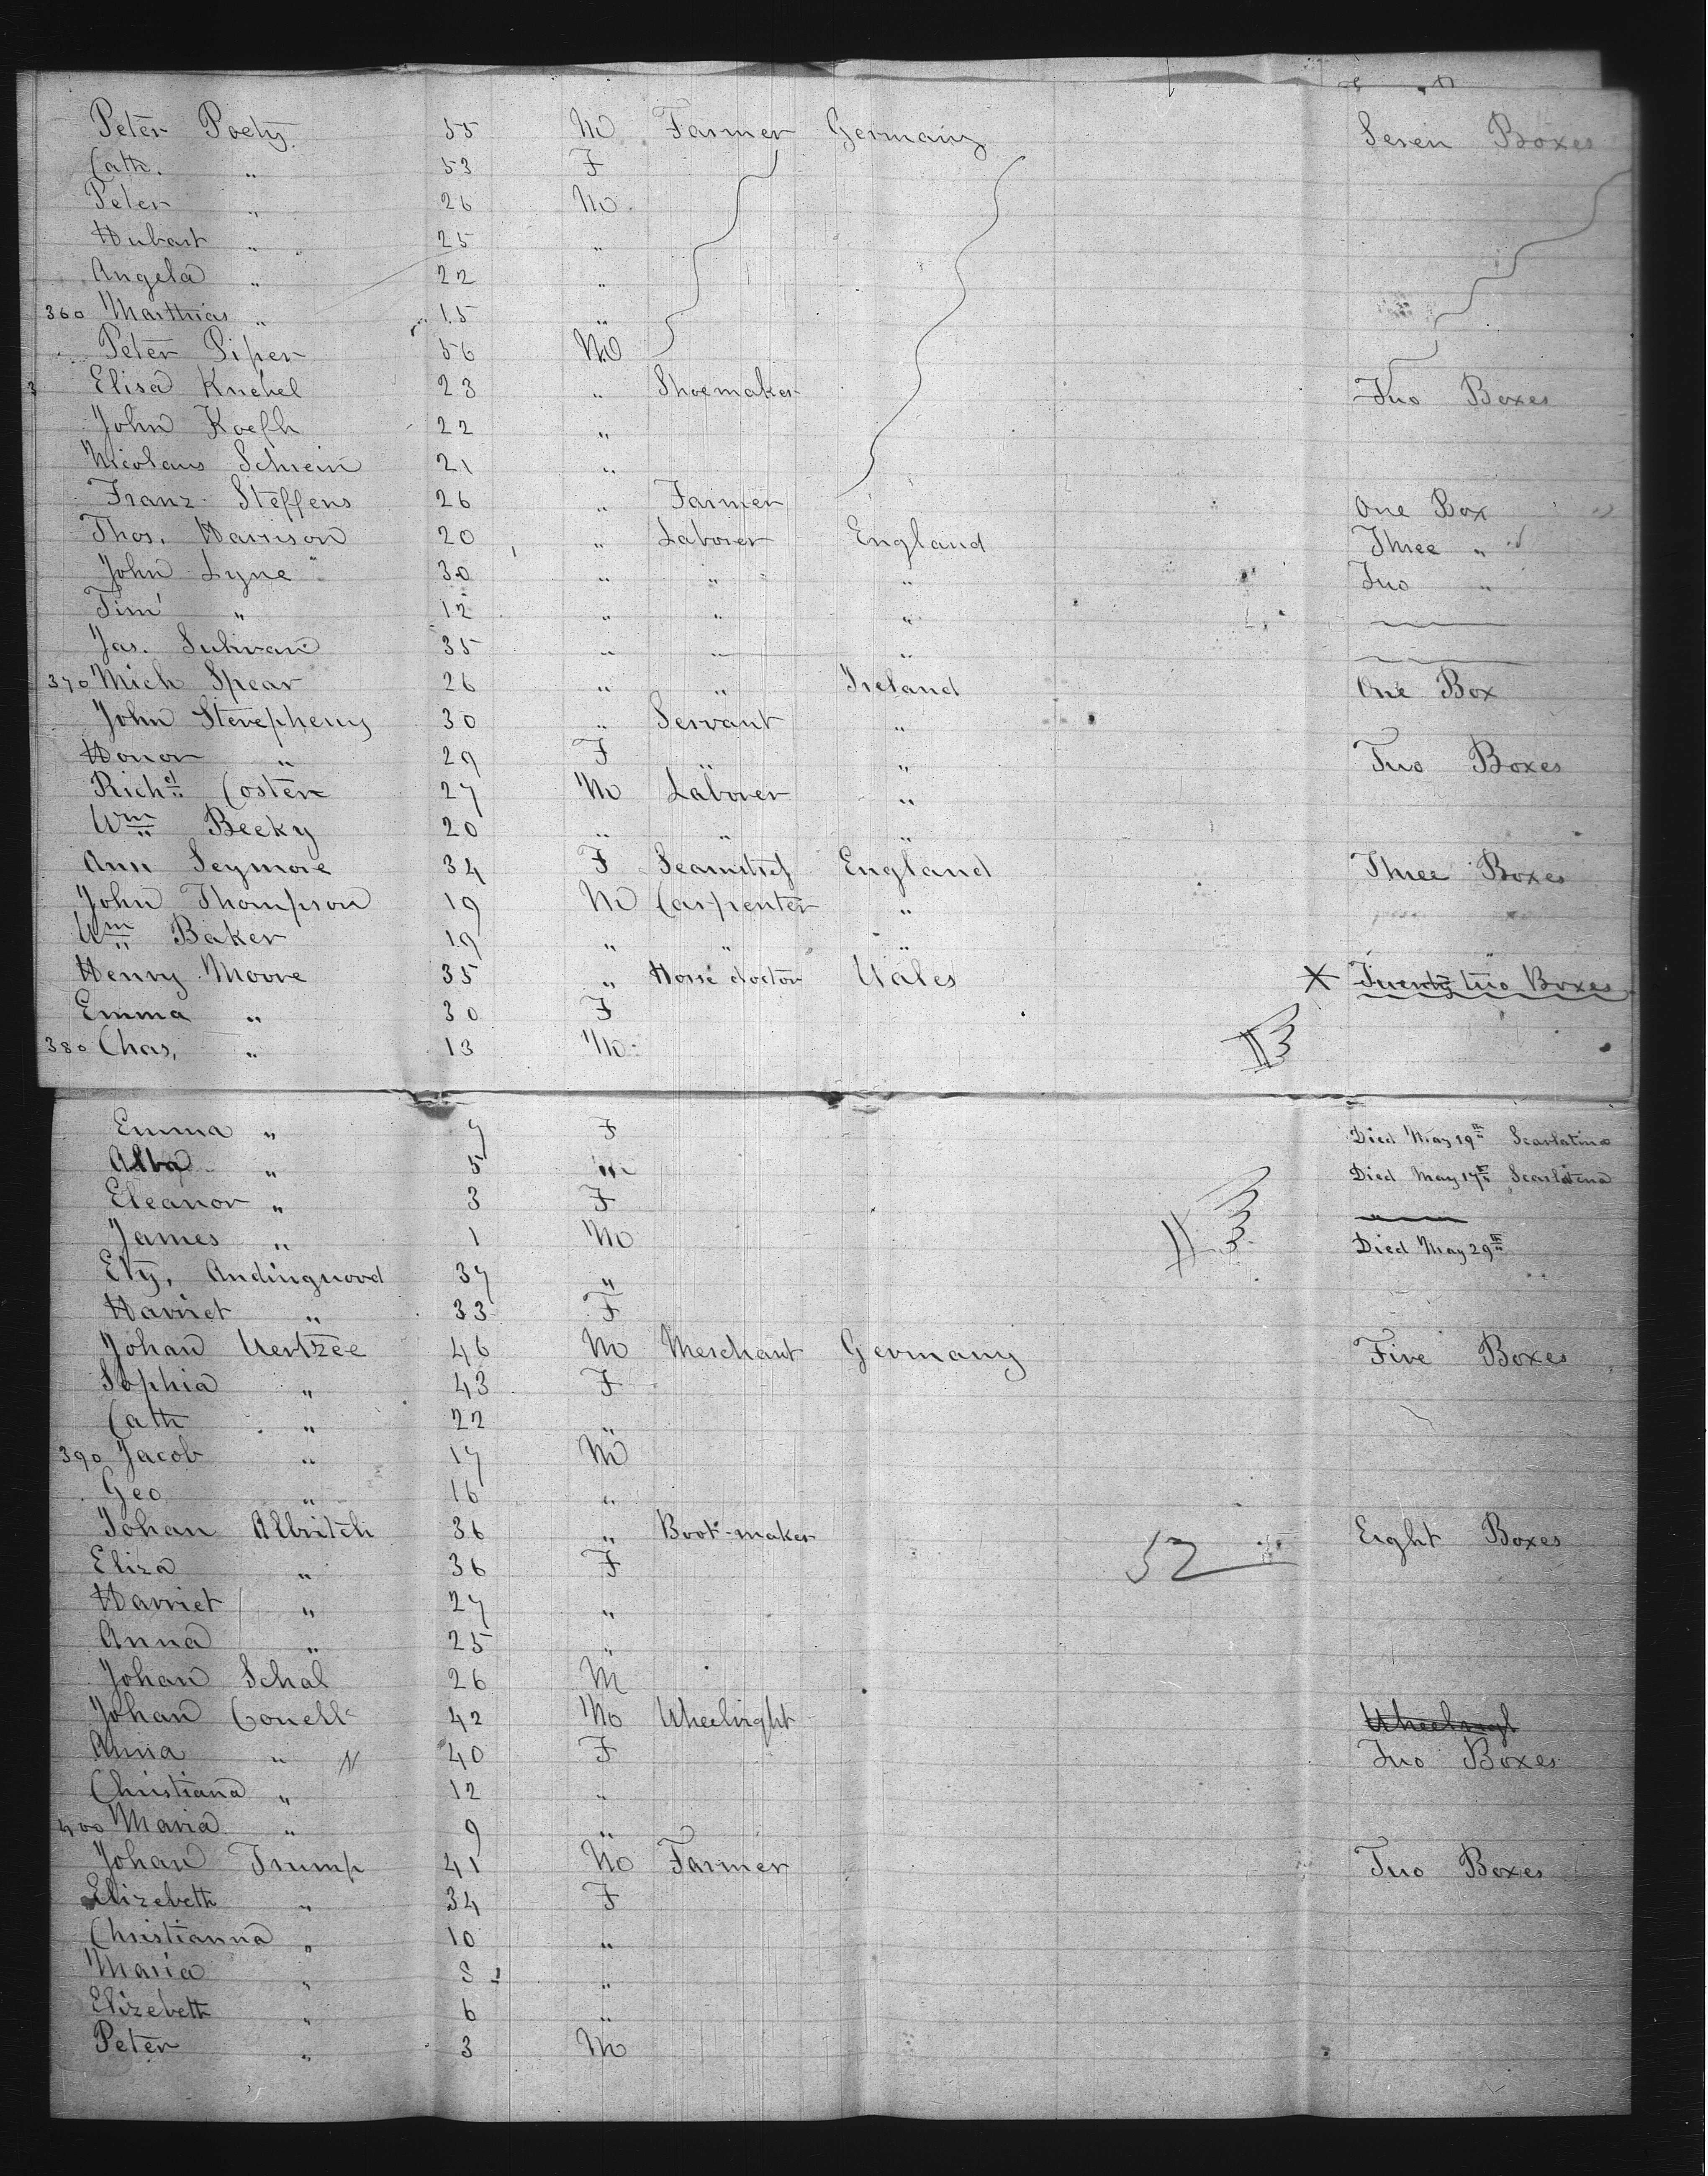 Peter Poety 55 M Farmer Germany Seven Boxes
Cath. " 53 F
Peter " 26 M
Hubart " 25 "
Angela " 22 "
360 Marthias " 15 "
Peter Piper 56 M
3 Elisa Knebel 23 " Shoemaker Two Boxes
John Koefh 22 "
Nicolaus Schrein 21 "
Franz Steffens 26 " Farmer One Box
Thos. Harrison 20 " Laborer England Three "
John Lyne 30 " " " Two "
Tim " 12 " " "
Jas. Sulivan 35 " " "
370 Mich Spear 26 " " Ireland One Box
John Stevepheny 30 " Servant "
Honor " 29 F " " Two Boxes
Richd Coster 27 M Laborer "
Wm Beeky 20 " " "
Ann Seymore 34 F Seamstress England Three Boxes
John Thompson 19 M Carpenter "
Wm Baker 19 " " "
Henry Moore 35 " Horse doctor Wales X Twenty two Boxes
Emma " 30 F
380 Chas, " 13 M
Emma " 7 F Died May 19th Scarlatina
" 5 M Died May 17th Scarlatina
Eleanor " 3 F
James " 1 M Died May 29th
Ety, Andingwood 37 "
Harriet " 33 F
Johan Uertzee 46 M Merchant Germany Five Boxes
Sophia " 43 F
Cath " 22 "
390 Jacob " 17 M
Geo " 16 "
Johan Albritch 36 " Boot-maker Eight Boxes
Eliza " 36 F 52
Harriet " 27 "
Anna " 25 "
Johan Schal 26 M
Johan Conell 42 M Wheelright Wheelrigt
Anna " 40 F Two Boxes
Christiana " 12 "
400 Maria " 9 "
Johan Trump 41 M Farmer Two Boxes
Elizebeth " 34 F
Christianna " 10 "
Maria " 8 "
Elizebeth " 6 "
Peter " 3 M